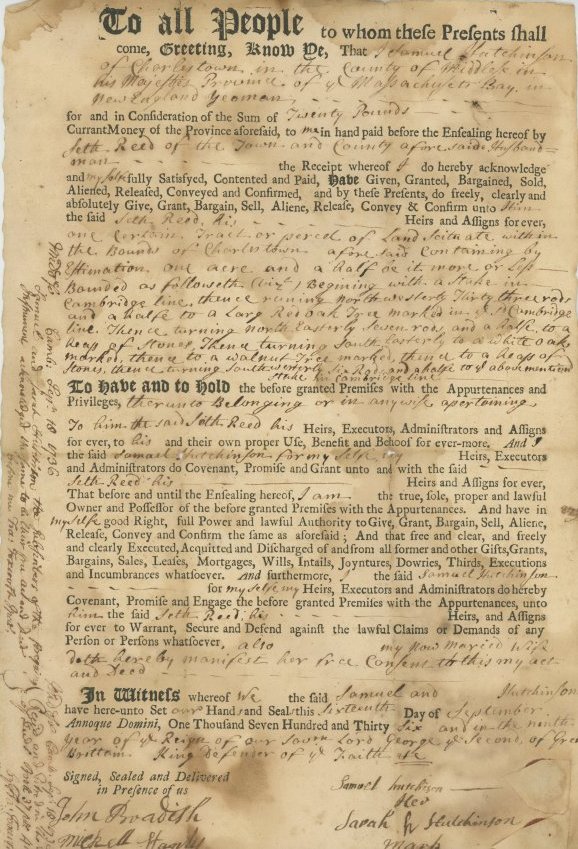 To all People to whom these Presents shall
come, Greeting, Know Ye, That I Samuel Hutchinson
of Charlestown in the County of Middlesex in
his Majesties Province of ye Massachusets Bay in
New England Yeoman
for and in Consideration of the Sum of Twenty Pounds
Currant Money of the Province aforesaid, to me in hand paid before the Ensealing hereof by
Seth Reed of the Town and County afore said Husband=
man the Receipt whereof I do hereby acknowledge
and my self fully Satisfyed, Contented and Paid, Have Given, Granted, Bargained, Sold,
Aliened, Released, Conveyed and Confirmed, and by these Presents, do freely, clearly and
absolutely Give, Grant, Bargain, Sell, Aliene, Release, Convey & Confirm unto Him
the said Seth Reed, his Heirs and Assigns for ever,
one Certain Tract or percel of Land Scituate within
the Bounds of Charlstown afore said Containing by
Estimation one acre and a half be it more or Less
Bounded as followeth (viz) Begining with a Stake in
Cambridge line, thence runing North westerly Thirty three rods
and a halfe to a Larg Red oak Tree marked in sd Cambridge
line. Thence turning North Easterly Seven rods, and a halfe to a
heap of Stones, Thence turning South Easterly to a White oak
marked, thence to a walnut Tree marked, thence to a heap of
Stones, thence turning South westerly Six Rods and a halfe to ye above mentiond
stake in Cambridge line
To Have and to Hold the before granted Premises with the Appurtenances and
Privileges, thereunto Belonging or in any wise apertaining
To him the said Seth Reed his Heirs, Executors, Administrators and Assigns
for ever, to his and their own proper Use, Benefit and Behoof for ever-more. And I
the said Samuel Hutchinson for my Selfe my Heirs, Executors
and Administrators do Covenant, Promise and Grant unto and with the said
Seth Reed his Heirs and Assigns for ever,
That before and until the Ensealing hereof, I am the true, sole, proper and lawful
Owner and Possessor of the before granted Premises with the Appurtenances. And have in
my selfe good Right, full Power and lawful Authority to Give, Grant, Bargain, Sell, Aliene,
Release, Convey and Confirm the same as aforesaid; And that free and clear, and freely
and clearly Executed, Acquitted and Discharged of and from all former and other Gifts, Grants,
Bargains, Sales, Leases, Mortgages, Wills, Intails, Joyntures, Dowries, Thirds, Executions
and Incumbrances whatsoever. And furthermore, I the said Samuel Hutchinson
for my selfe my Heirs, Executors and Administrators do hereby
Covenant, Promise and Engage the before granted Premises with the Appurtenances, unto
him the said Seth Reed, his Heirs, and Assigns
for ever to Warrant, Secure and Defend against the lawful Claims or Demands of any
Person or Persons whatsoever, also my Now Maried Wife
doth hereby manifest her free Consent to this my act
and Deed
In Witness whereof We the said Samuel and Hutchinson
have here-unto Set our Hand and Seal this Sixteenth Day of September
Annoque Domini, One Thousand Seven Hundred and Thirty Six and in the ninth
year of ye Reign of our Lord George ye Second, of Great
Brittain King defender of ye Faith
Signed, Sealed and Delivered
in Presence of us
Samuel Hutchison
Her
John Bradish
Sarah Hutchinson
Mark
Camb. Sept 18 1736
Samuel and Sarah Hutchison the Subscribers